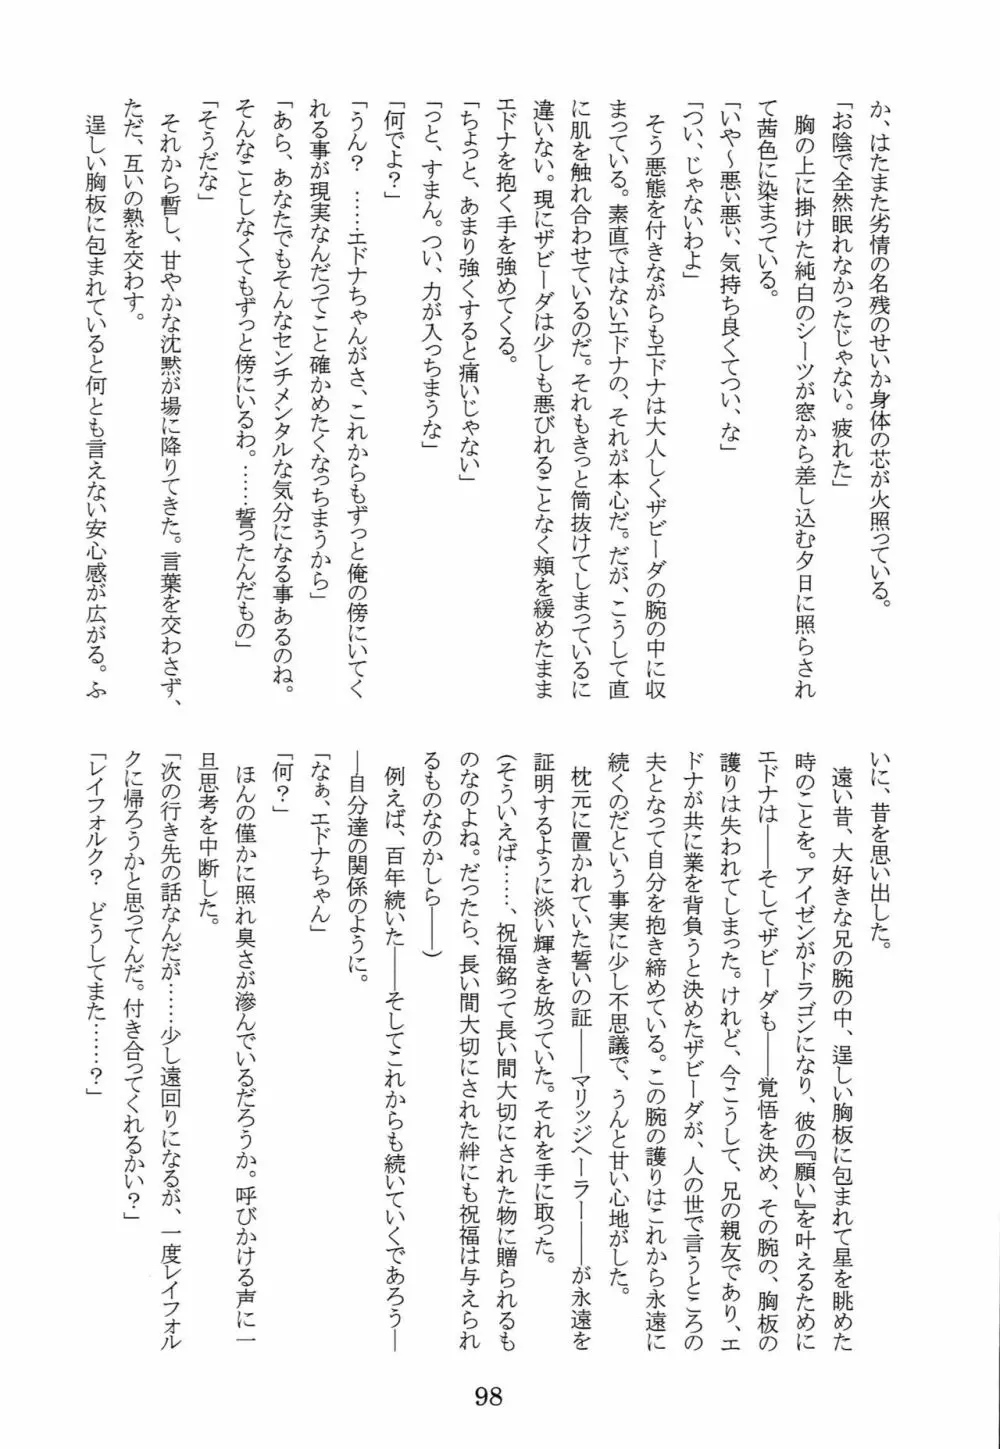 か、はたまた劣情の名残のせいか身体の芯が火照っている。
「お陰で全然眠れなかったじゃない。疲れた」
胸の上に掛けた純白のシーツが窓から差し込む夕日に照らされ
て茜色に染まっている。
「いや〜悪い悪ぃ、気持ち良くてつい、な」
「つい、じゃないわよ」
そう悪態を付きながらもエドナは大人しくザビーダの腕の中に収
まっている。素直ではないエドナの、それが本心だ。だが、こうして直
に肌を触れ合わせているのだ。それもきっと筒抜けてしまっているに
違いない。現にザビーダは少しも悪びれることなく頬を緩めたまま
エドナを抱く手を強めてくる。
「ちょっと、あまり強くすると痛いじゃない」
「っと、すまん。つい、力が入っちまうな」
「何でよ？」
「うん？　……エドナちゃんがさ、これからもずっと俺の傍にいてく
れる事が現実なんだってこと確かめたくなっちまうから」
「あら、あなたでもそんなセンチメンタルな気分になる事あるのね。
そんなことしなくてもずっと傍にいるわ。……誓ったんだもの」
「そうだな」
それから暫し、甘やかな沈黙が場に降りてきた。言葉を交わさず、
ただ、互いの熱を交わす。
逞しい胸板に包まれていると何とも言えない安心感が広がる。ふ
いに、昔を思い出した。
遠い昔、大好きな兄の腕の中、逞しい胸板に包まれて星を眺めた
時のことを。アイゼンがドラゴンになり、彼の『願い』を叶えるために
エドナは――そしてザビーダも――覚悟を決め、その腕の、胸板の
護りは失われてしまった。けれど、今こうして、兄の親友であり、エ
ドナが共に業を背負うと決めたザビーダが、人の世で言うところの
夫となって自分を抱き締めている。この腕の護りはこれから永遠に
続くのだという事実に少し不思議で、うんと甘い心地がした。
枕元に置かれていた誓いの証――マリッジヘーラー――が永遠を
証明するように淡い輝きを放っていた。それを手に取った。
（そういえば……、祝福銘って長い間大切にされた物に贈られるも
のなのよね。だったら、長い間大切にされた絆にも祝福は与えられ
るものなのかしら――）
例えば、百年続いた――そしてこれからも続いていくであろう―
―自分達の関係のように。
「なぁ、エドナちゃん」
「何？」
ほんの僅かに照れ臭さが滲んでいるだろうか。呼びかける声に一
旦思考を中断した。
「次の行き先の話なんだが……少し遠回りになるが、一度レイフォル
クに帰ろうかと思ってんだ。付き合ってくれるかい？」
「レイフォルク？　どうしてまた……？」
98